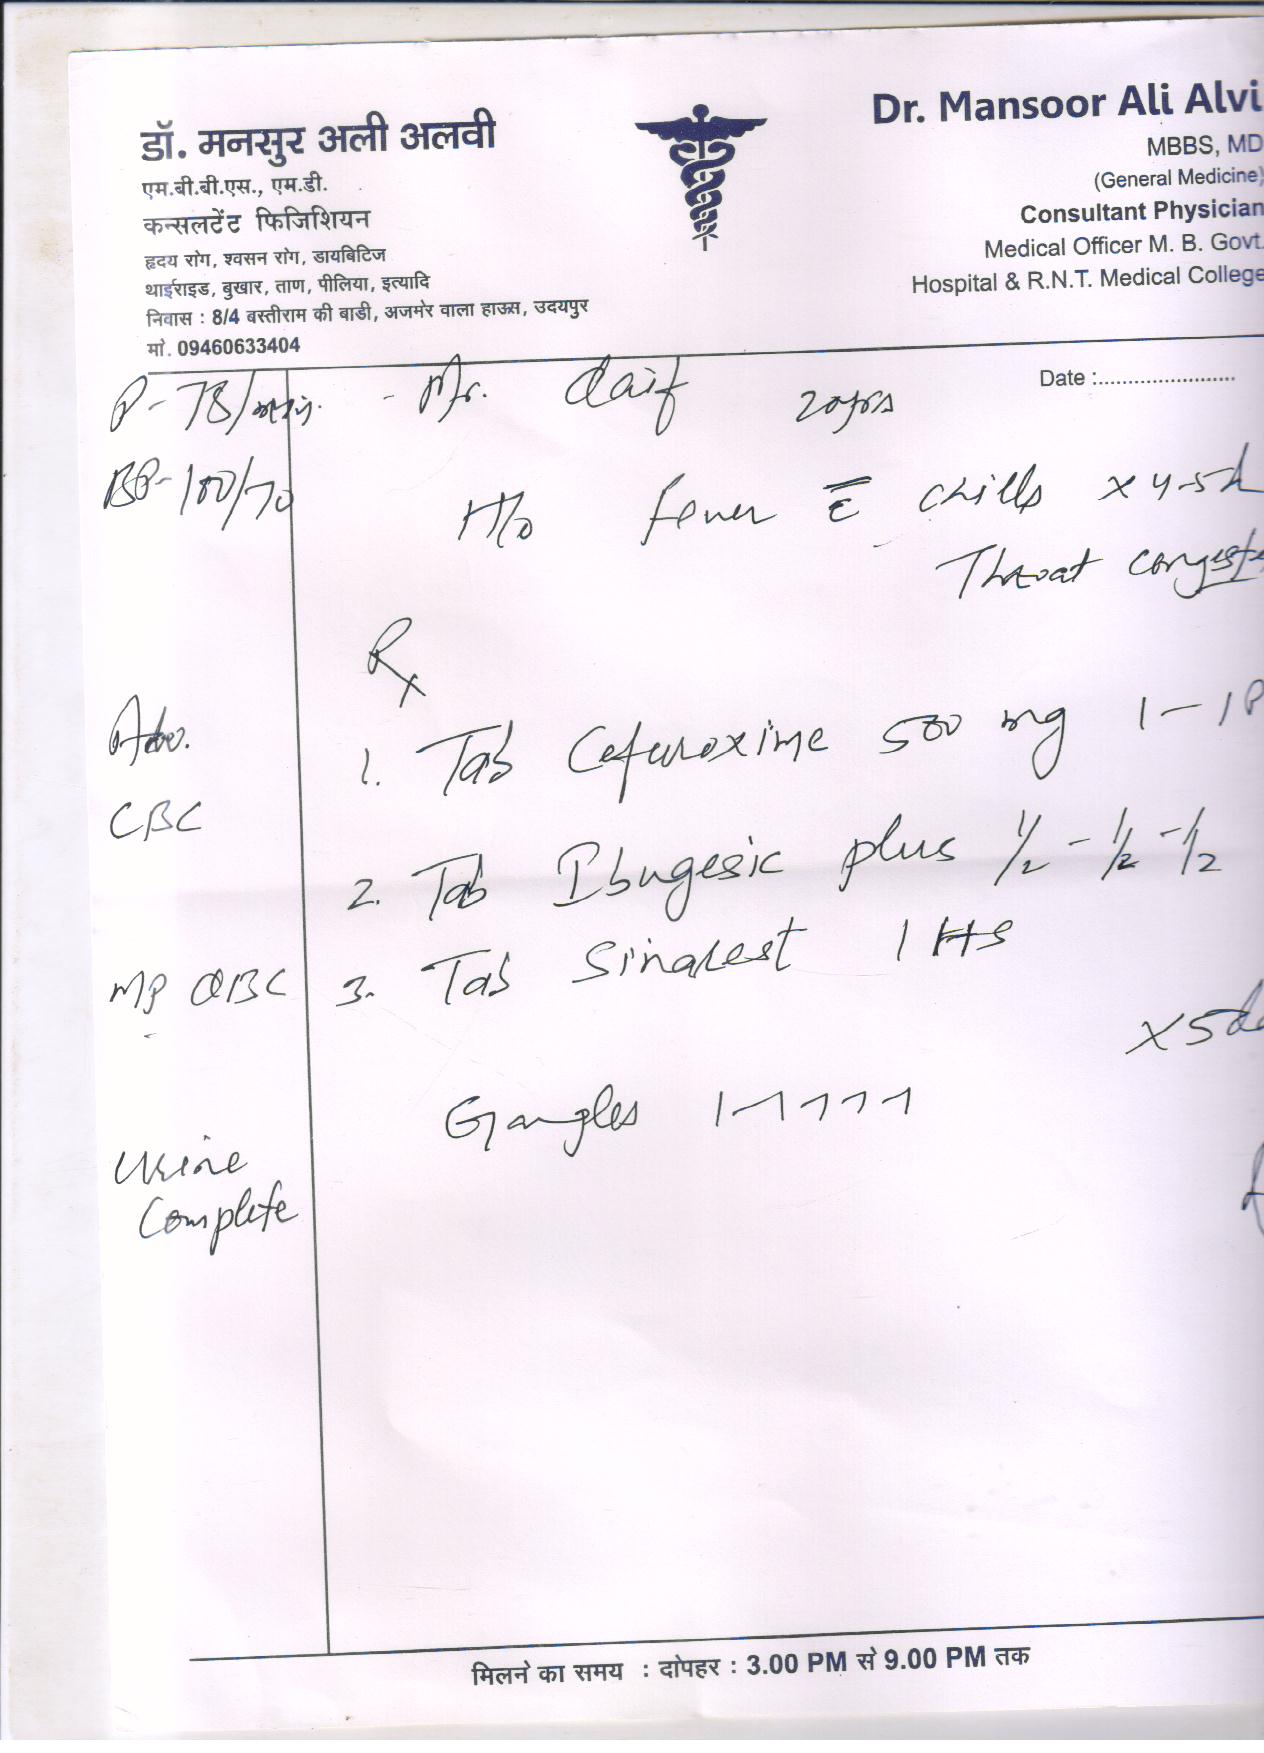 डॉ. मनसुर अली अलवी
एम.बी.बी.एस., एम.डी.
कन्सलटेंट फिजिशियन
हृदय रोग, श्वसन रोग, डायबिटिज
थाईराइड, बुखार, ताण, पीलिया, इत्यादि
निवास : 8/4 बस्तीराम की बाडी, अजमेर वाला हाऊस, उदयपुर
मो. 09460633404
Dr. Mansoor Ali Alvi
MBBS, MD
(General Medicine)
Consultant Physician
Medical Officer M. B. Govt.
Hospital & R.N.T. Medical College
Date :.......................
P-78/min. - Mr. 20yrs
BP-100/70
H/o fever c̄ chills x 4-5d
Throat congeste
Rx
Adv.
1. Tab Cefuroxime 500 mg 1-1
CBC
2. Tab Ibugesic plus 1/2-1/2-1/2
MP QBC
3. Tab Sinarest 1 HS
x5da
Gargles 1-1-1-1-1
Urine
Complete
मिलने का समय : दोपहर : 3.00 PM से 9.00 PM तक